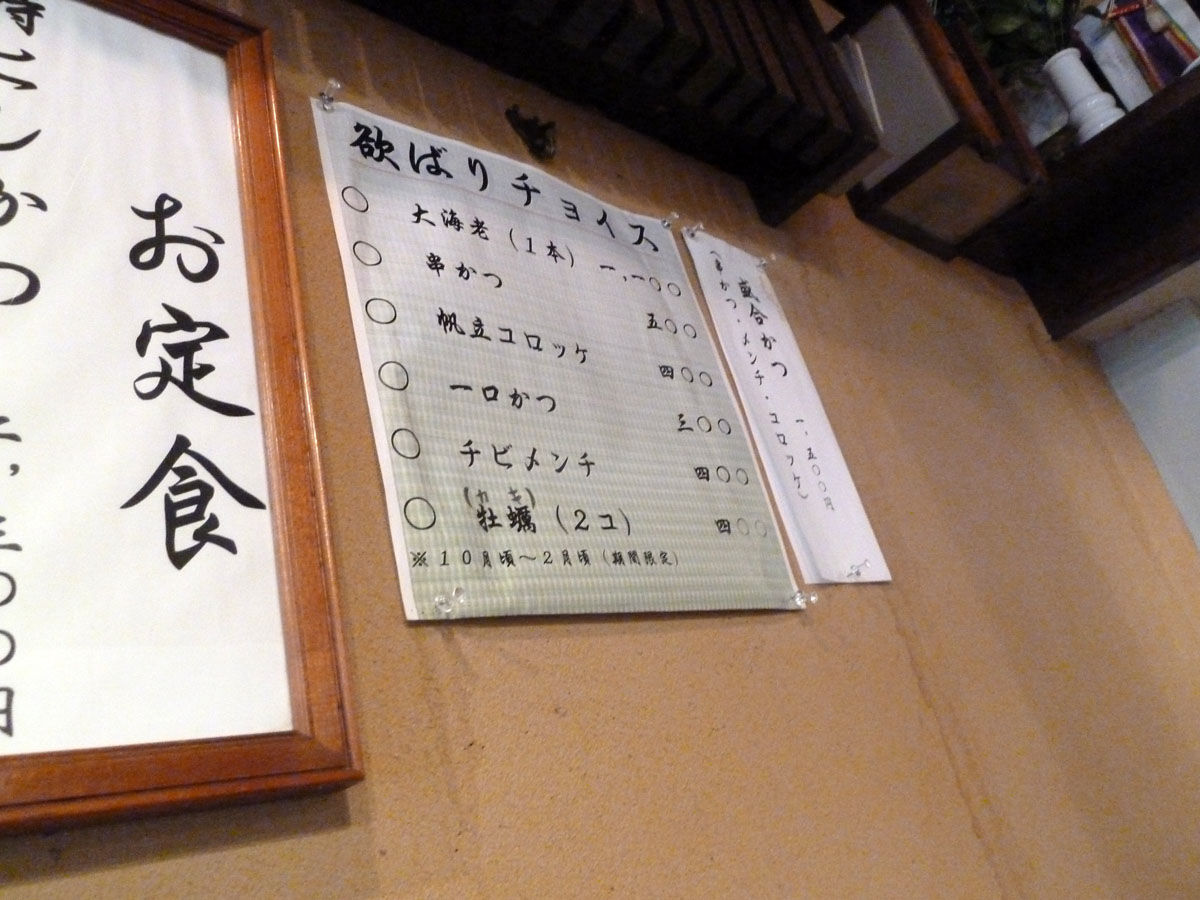 お定食
特にしかつ
二,三〇〇円
欲ばりチョイス
〇 大海老（1本） 一,一〇〇
〇 串かつ 五〇〇
〇 帆立コロッケ 四〇〇
〇 一口かつ 三〇〇
〇 チビメンチ 四〇〇
(カキ)
〇 牡蠣（2コ） 四〇〇
※10月頃～2月頃（期間限定）
盛合かつ 一、五〇〇円
（串かつ・メンチ・コロッケ）